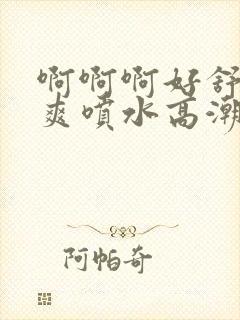 啊啊啊好舒
爽喷水高潮
阿帕奇